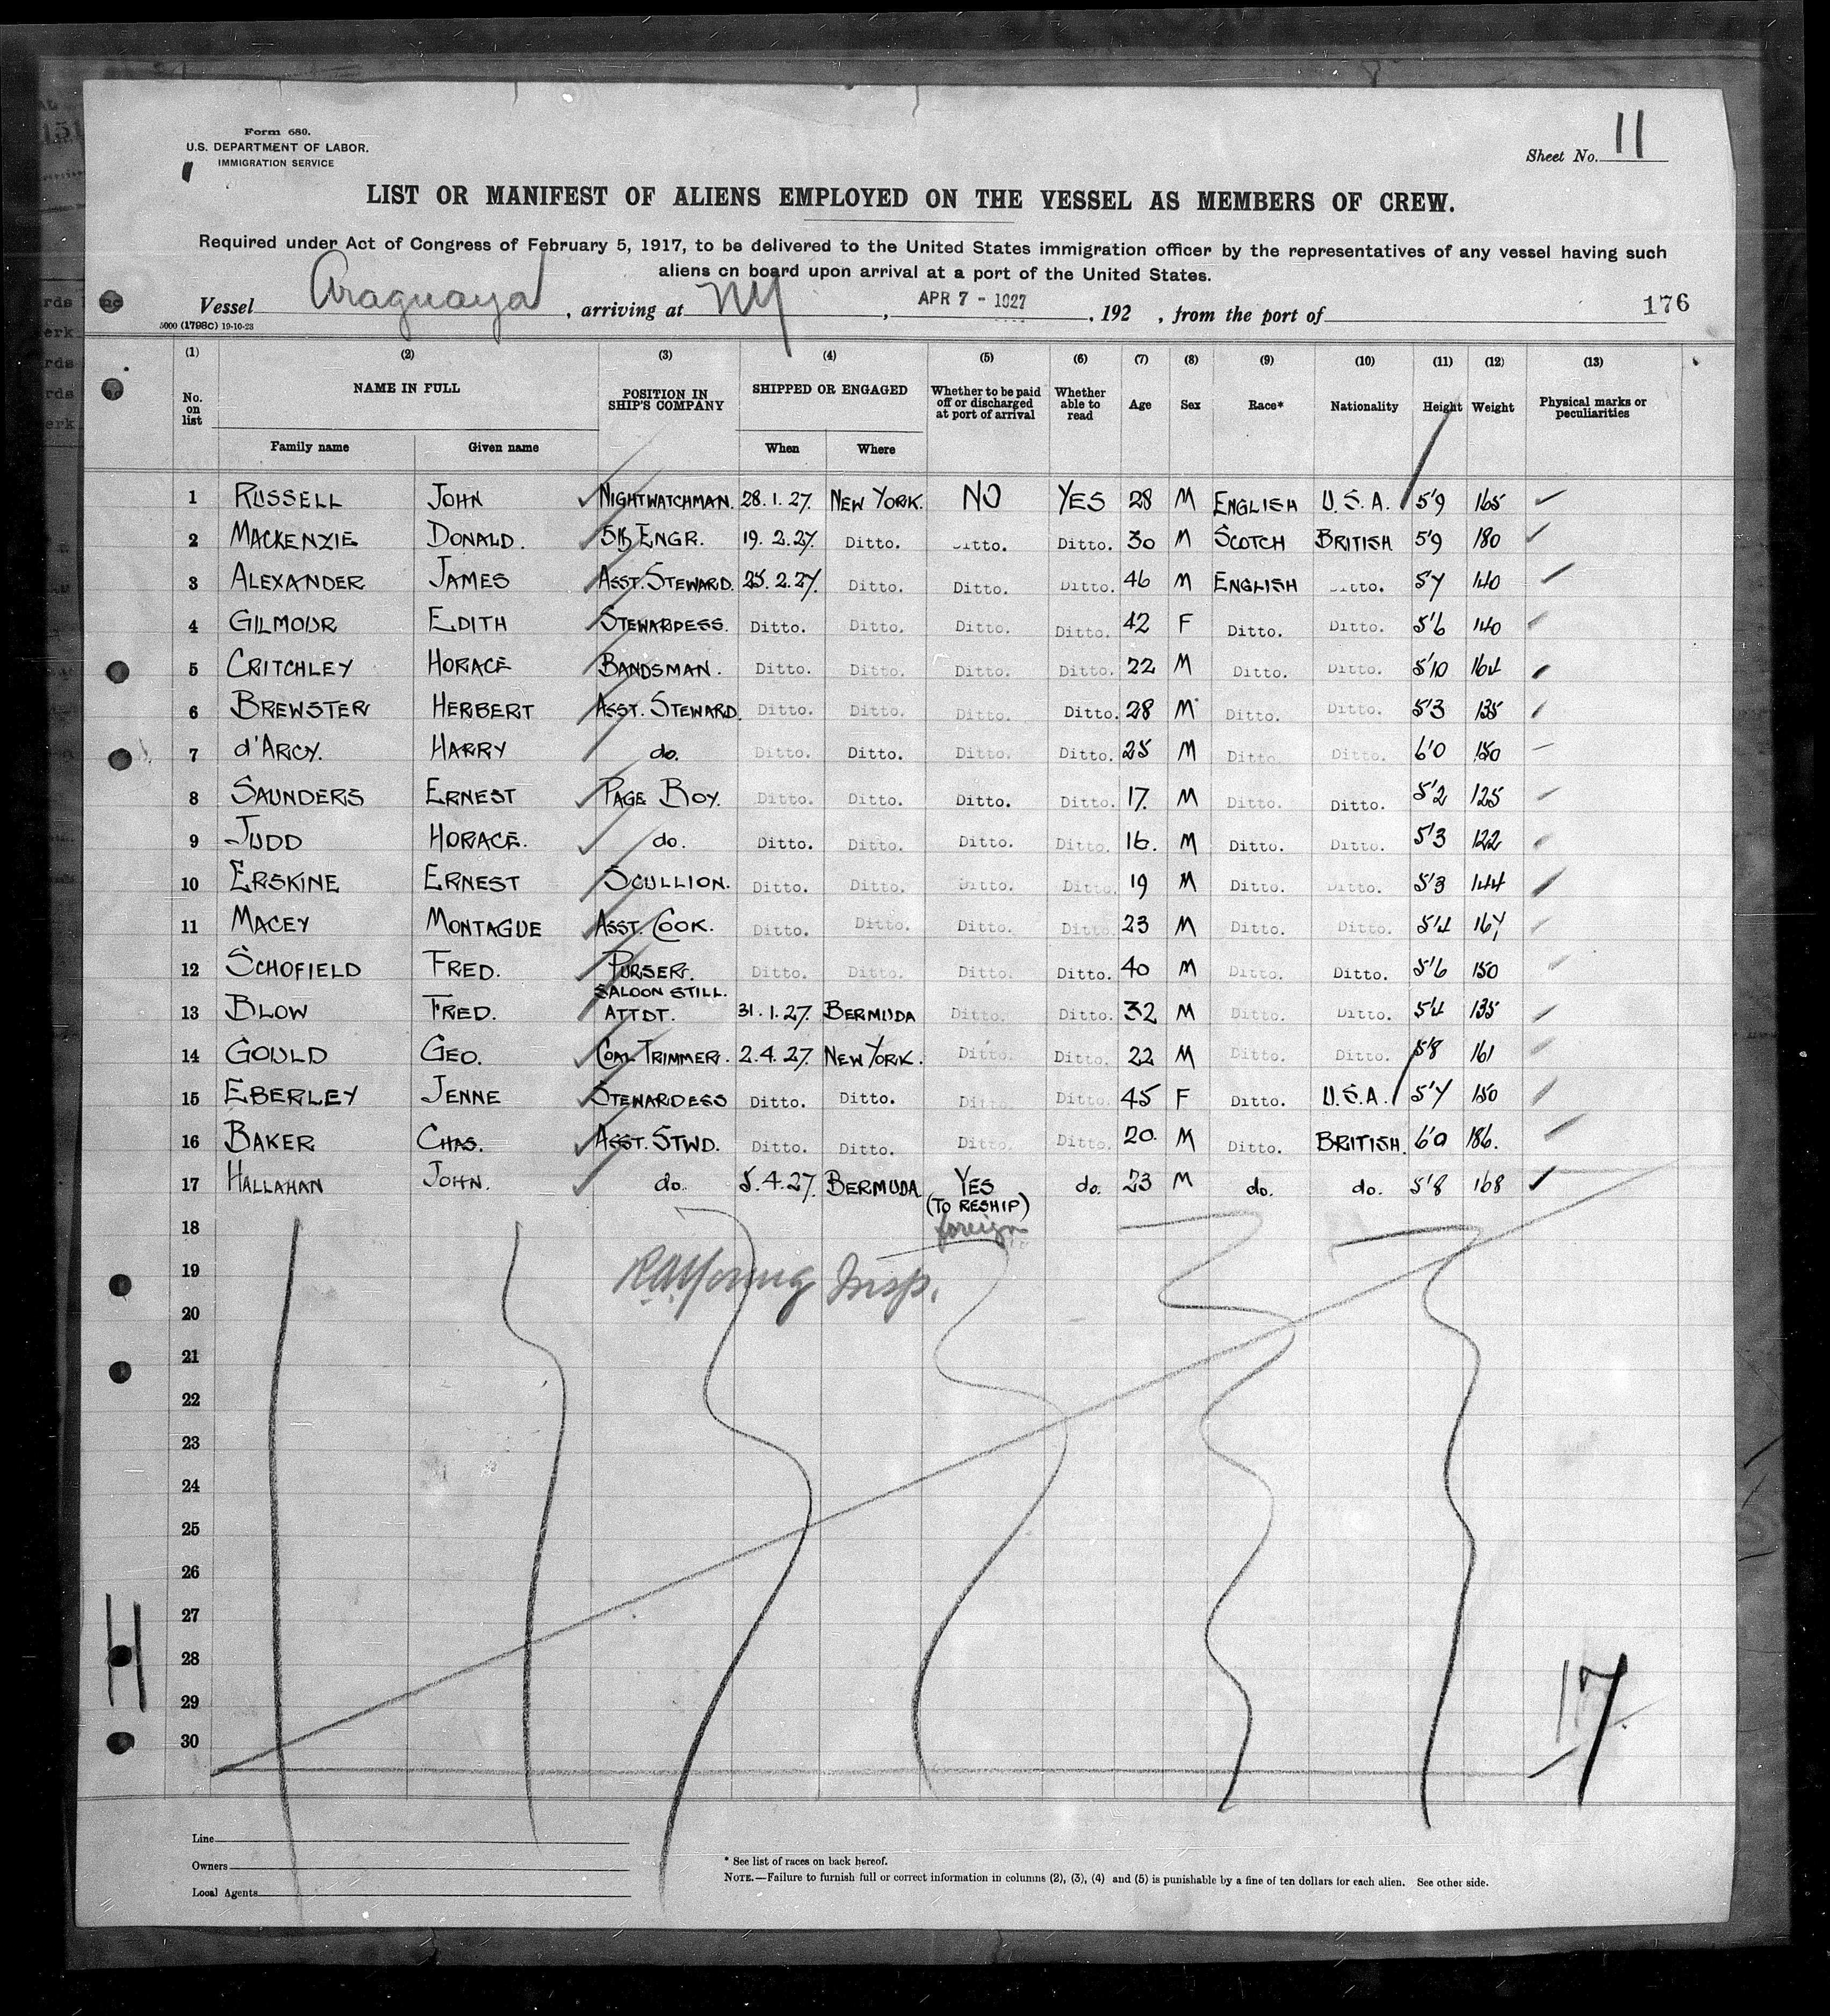 Form 680.
U.S. DEPARTMENT OF LABOR.
IMMIGRATION SERVICE
Sheet No. 11
LIST OR MANIFEST OF ALIENS EMPLOYED ON THE VESSEL AS MEMBERS OF CREW.
Required under Act of Congress of February 5, 1917, to be delivered to the United States immigration officer by the representatives of any vessel having such
aliens on board upon arrival at a port of the United States.
Vessel Araguaya, arriving at NY, APR 7 - 1927, 192 , from the port of 176
5000 (1798C) 19-10-23
(1) (2) (3) (4) (5) (6) (7) (8) (9) (10) (11) (12) (13)
No. on list NAME IN FULL POSITION IN SHIP'S COMPANY SHIPPED OR ENGAGED Whether to be paid off or discharged at port of arrival Whether able to read Age Sex Race* Nationality Height Weight Physical marks or peculiarities
Family name Given name When Where
1 RUSSELL JOHN NIGHTWATCHMAN. 28.1.27. NEW YORK. NO YES 28 M ENGLISH U.S.A. 5'9 165
2 MACKENZIE DONALD. 5th ENGR. 19.2.27. Ditto. Ditto. Ditto. 30 M SCOTCH BRITISH 5'9 180
3 ALEXANDER JAMES ASST. STEWARD. 25.2.27. Ditto. Ditto. Ditto. 46 M ENGLISH Ditto. 5'7 140
4 GILMOUR EDITH STEWARDESS. Ditto. Ditto. Ditto. Ditto. 42 F Ditto. Ditto. 5'6 140
5 CRITCHLEY HORACE BANDSMAN. Ditto. Ditto. Ditto. Ditto. 22 M Ditto. Ditto. 5'10 164
6 BREWSTER HERBERT ASST. STEWARD. Ditto. Ditto. Ditto. Ditto. 28 M Ditto. Ditto. 5'3 135
7 d'ARCY. HARRY do. Ditto. Ditto. Ditto. Ditto. 25 M Ditto. Ditto. 6'0 150
8 SAUNDERS ERNEST PAGE BOY. Ditto. Ditto. Ditto. Ditto. 17. M Ditto. Ditto. 5'2 125
9 JUDD HORACE. do. Ditto. Ditto. Ditto. Ditto. 16. M Ditto. Ditto. 5'3 122
10 ERSKINE ERNEST SCULLION. Ditto. Ditto. Ditto. Ditto. 19 M Ditto. Ditto. 5'3 144
11 MACEY MONTAGUE ASST. COOK. Ditto. Ditto. Ditto. Ditto. 23 M Ditto. Ditto. 5'4 167
12 SCHOFIELD FRED. PURSER. Ditto. Ditto. Ditto. Ditto. 40 M Ditto. Ditto. 5'6 150
13 BLOW FRED. SALOON STILL. ATTDT. 31.1.27. BERMUDA Ditto. Ditto. 32 M Ditto. Ditto. 5'4 135
14 GOULD GEO. COAL TRIMMER. 2.4.27. NEW YORK. Ditto. Ditto. 22 M Ditto. Ditto. 5'8 161
15 EBERLEY JENNE STEWARDESS Ditto. Ditto. Ditto. Ditto. 45 F Ditto. U.S.A. 5'7 150
16 BAKER CHAS. ASST. STWD. Ditto. Ditto. Ditto. Ditto. 20. M Ditto. BRITISH. 6'0 186.
17 HALLAHAN JOHN. do. 5.4.27. BERMUDA YES do. 23 M do. do. 5'8 168
(TO RESHIP)
18 foreign
19 R.A. Young Insp.
20
21
22
23
24
25
26
27
28
29
30
H
17
Line
Owners
Local Agents
* See list of races on back hereof.
NOTE.—Failure to furnish full or correct information in columns (2), (3), (4) and (5) is punishable by a fine of ten dollars for each alien. See other side.